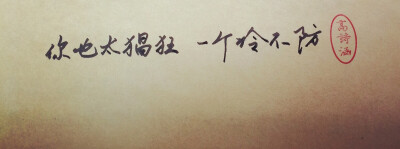 你也太猖狂 一个冷不防
高诗涵